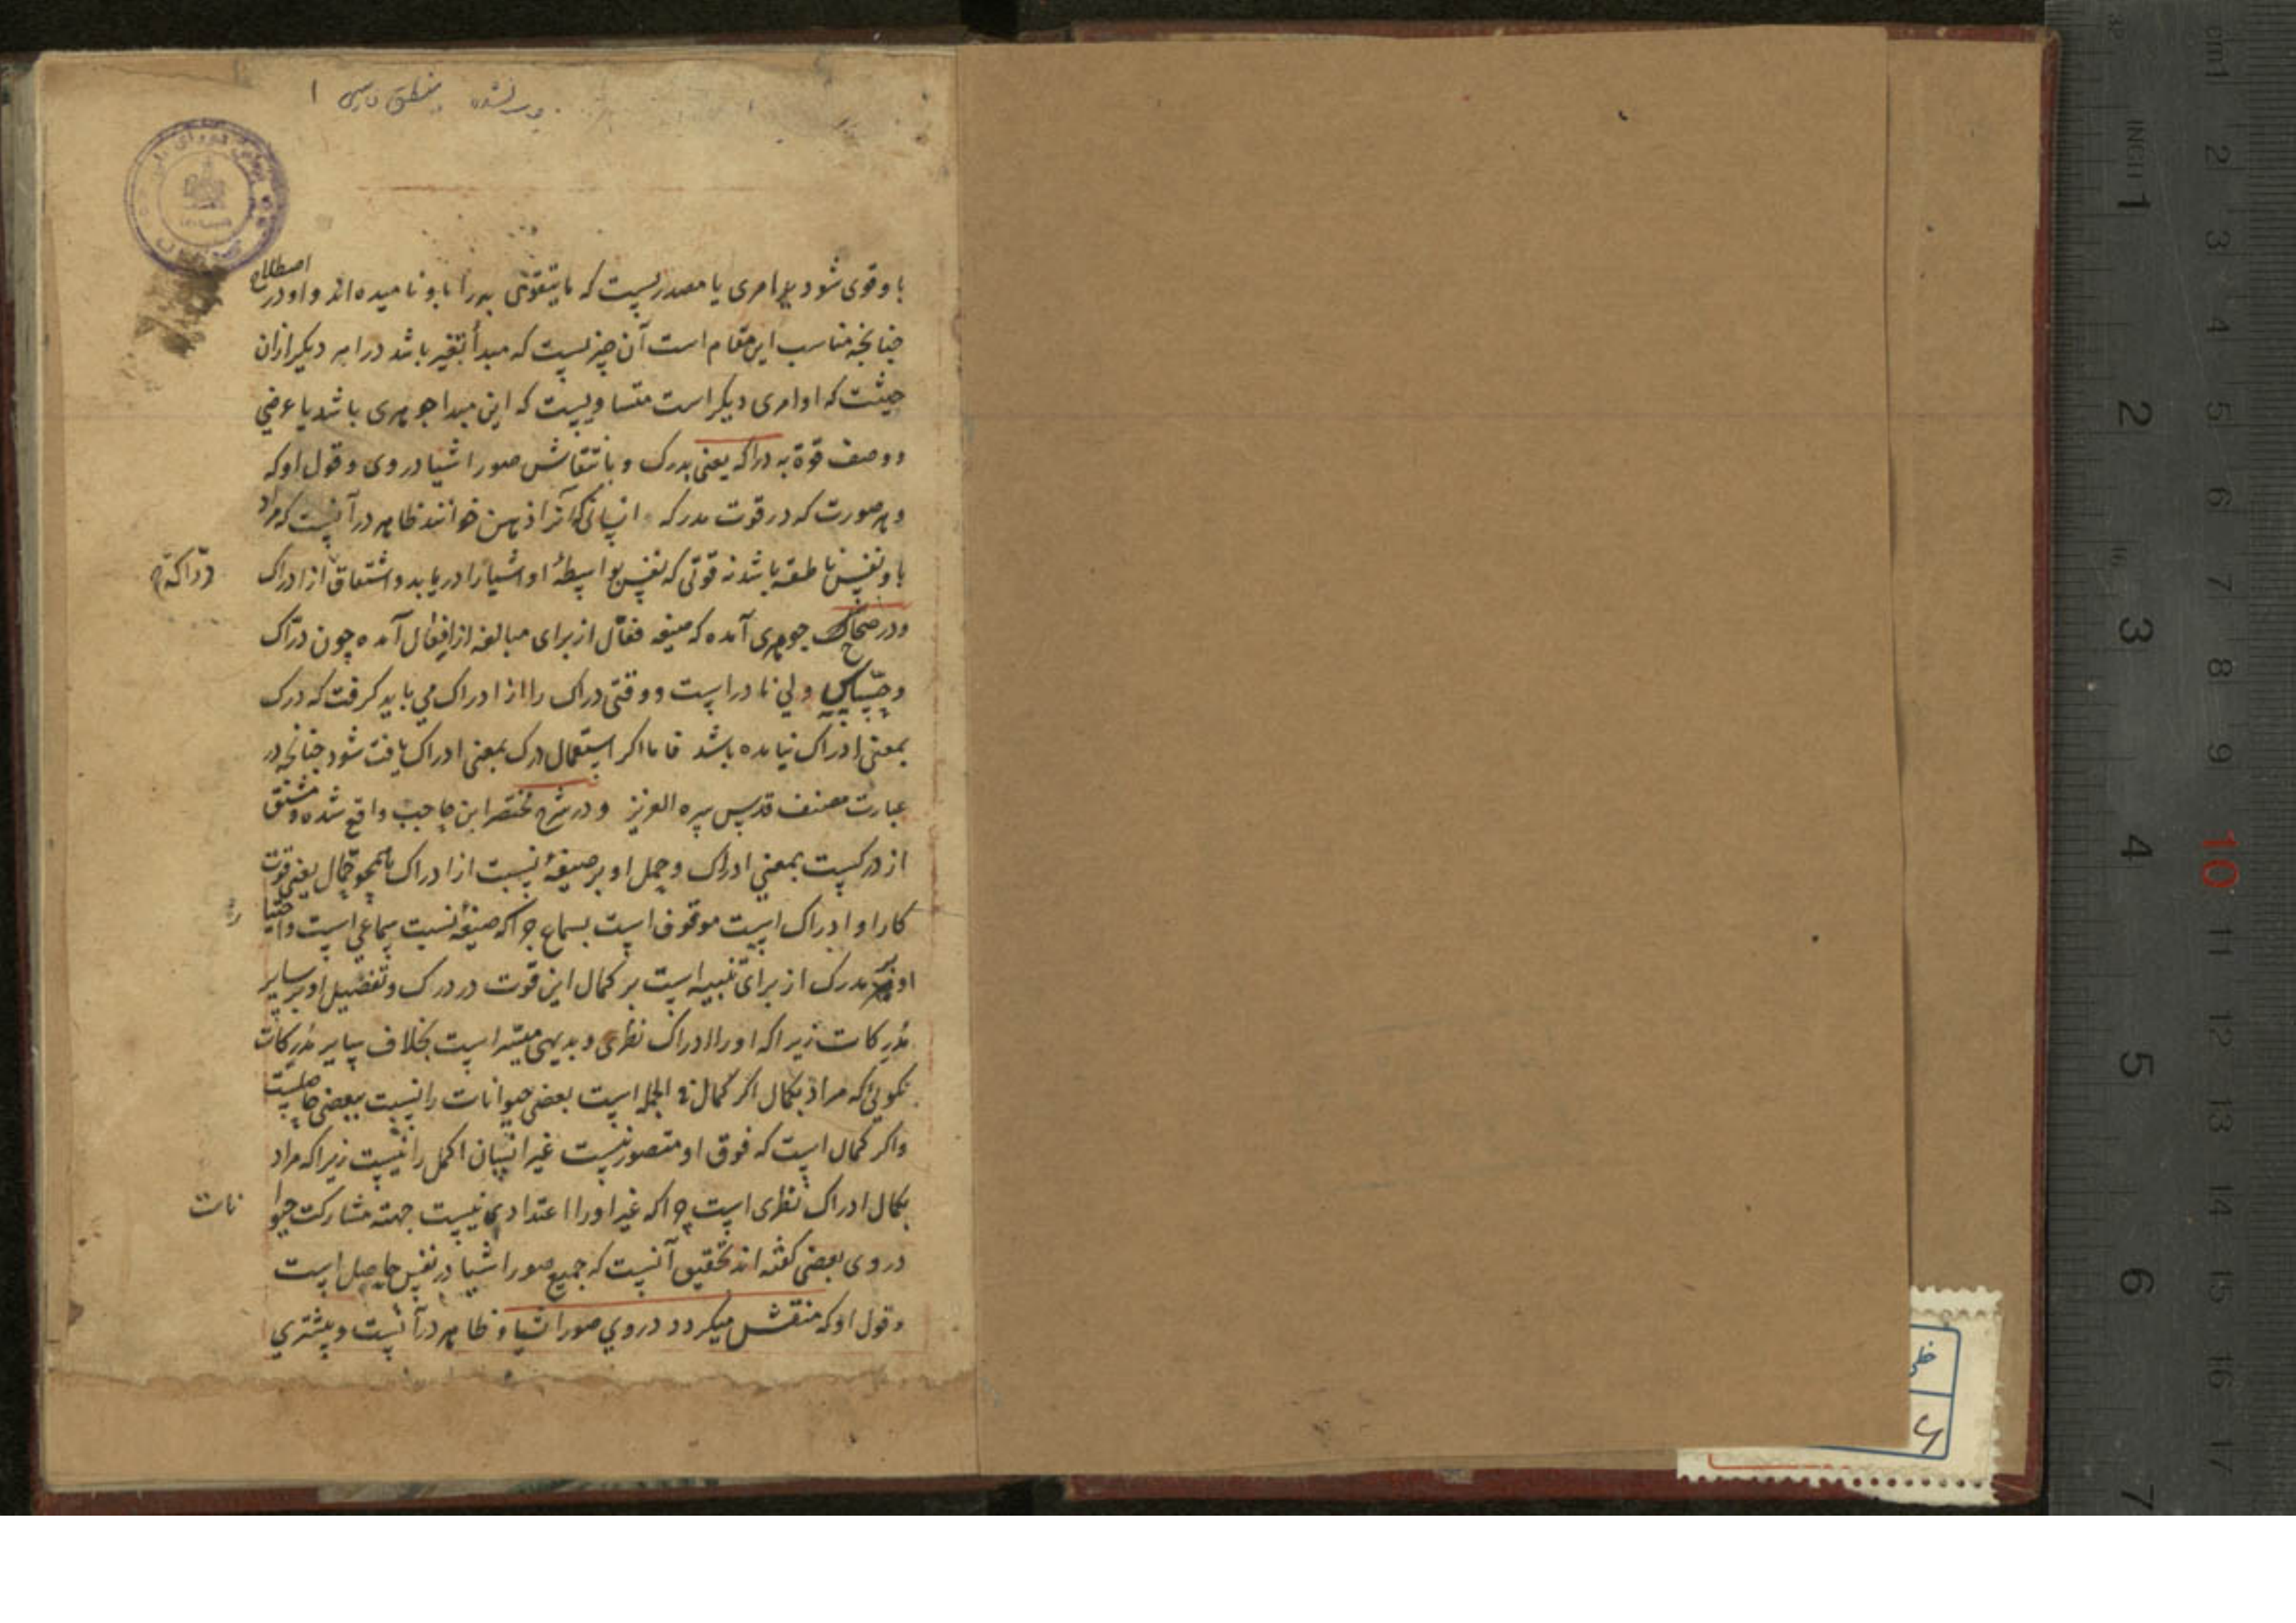 منطق فارسی ۱
با و قوی شود بر امری یا مصدریست که ما یتقوی به را باو نامیده اند و او در اصطلاح
چنانچه مناسب این مقام است آن چیزیست که مبدأ تغیر باشد در امر دیگر ازان
حیثت که او امری دیگر است متساویست که این مبدا جوهری باشد یا عرضی
و وصف قوة به دراکه یعنی بدرک و بانتقاش صور اشیا در وی و قول او که
و هر صورت که در قوت مدرکه انسانی که آنرا ذهن خوانند ظاهر در آنست که مراد
باو نفس ناطقه باشد نه قوتی که نفس بواسطهٔ او اشیا را دریابد و اشتقاق از ادراک
درّاکه
و در صحاح جوهری آمده که صیغه فعّال از برای مبالغه از افعال آمده چون درّاک
و حسّاس ولی نادر است و وقتی دراک را از ادراک می باید گرفت که درک
بمعنی ادراک نیامده باشد فاما اگر استعمال درک بمعنی ادراک یافت شود چنانچه در
عبارت مصنف قدس سره العزیز و در شرح مختصر ابن حاجب واقع شده و مشتق
از درکست بمعنی ادراک و حمل او بر صیغهٔ نسبت از ادراک همچو جمّال یعنی قوت
کار او ادراک است موقوف است بسماع چرا که صیغهٔ نسبت سماعی است و اختیا
ر
او بر مدرک از برای تنبیه است بر کمال این قوت در درک و تفضیل او بر سایر
مُدرِکات زیرا که او را ادراک نظری و بدیهی میسّر است بخلاف سایر مُدرِکات
نکوئی که مراد بکمال اگر کمال فی الجمله است بعضی حیوانات را نسبت ببعضی حاصلست
و اگر کمال است که فوق او متصور نیست غیر انسان اکمل را نیست زیرا که مراد
بکمال ادراک نظری است چرا که غیر او را اعتدادی نیست جهته مشارکت حیوا
نات
در وی بعضی گفته اند تحقیق آنست که جمیع صور اشیا در نفس حاصل است
و قول او که منتقش میگردد در وی صور اشیا و ظاهر در آنست و بیشتری
خطی